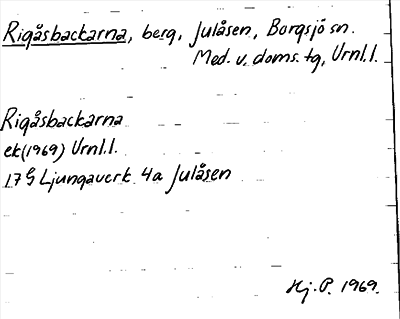 Rigåsbackarna, berg, Julåsen, Borgsjö sn.
Med. v. doms. tg, Urnl.l.
Rigåsbackarna
ek(1969) Urnl.l.
17G Ljungaverk 4a Julåsen
Hj. P. 1969.